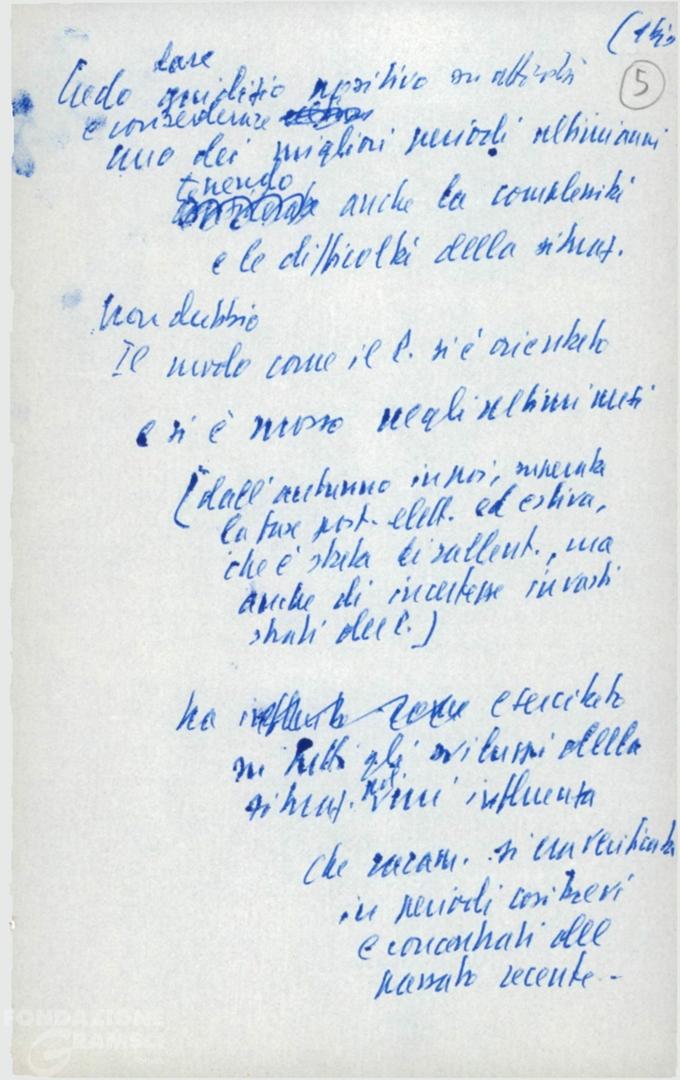 (1bis
5
dare
Credo giudizio positivo su attività
e considerare
uno dei migliori periodi ultimi anni
tenendo
anche la complessità
e le difficoltà della situaz.
Non dubbio
Il modo come il P. si è orientato
e si è mosso negli ultimi mesi
(dall'autunno in poi, superata
la fase post-elett. ed estiva,
che è stata di rallent., ma
anche di incertezze in vasti
strati del P.)
ha esercitato
su tutti gli sviluppi della
situaz. influenza
che raram. si era verificata
in periodi così brevi
e concentrati del
passato recente -
FONDAZIONE
GRAMSCI